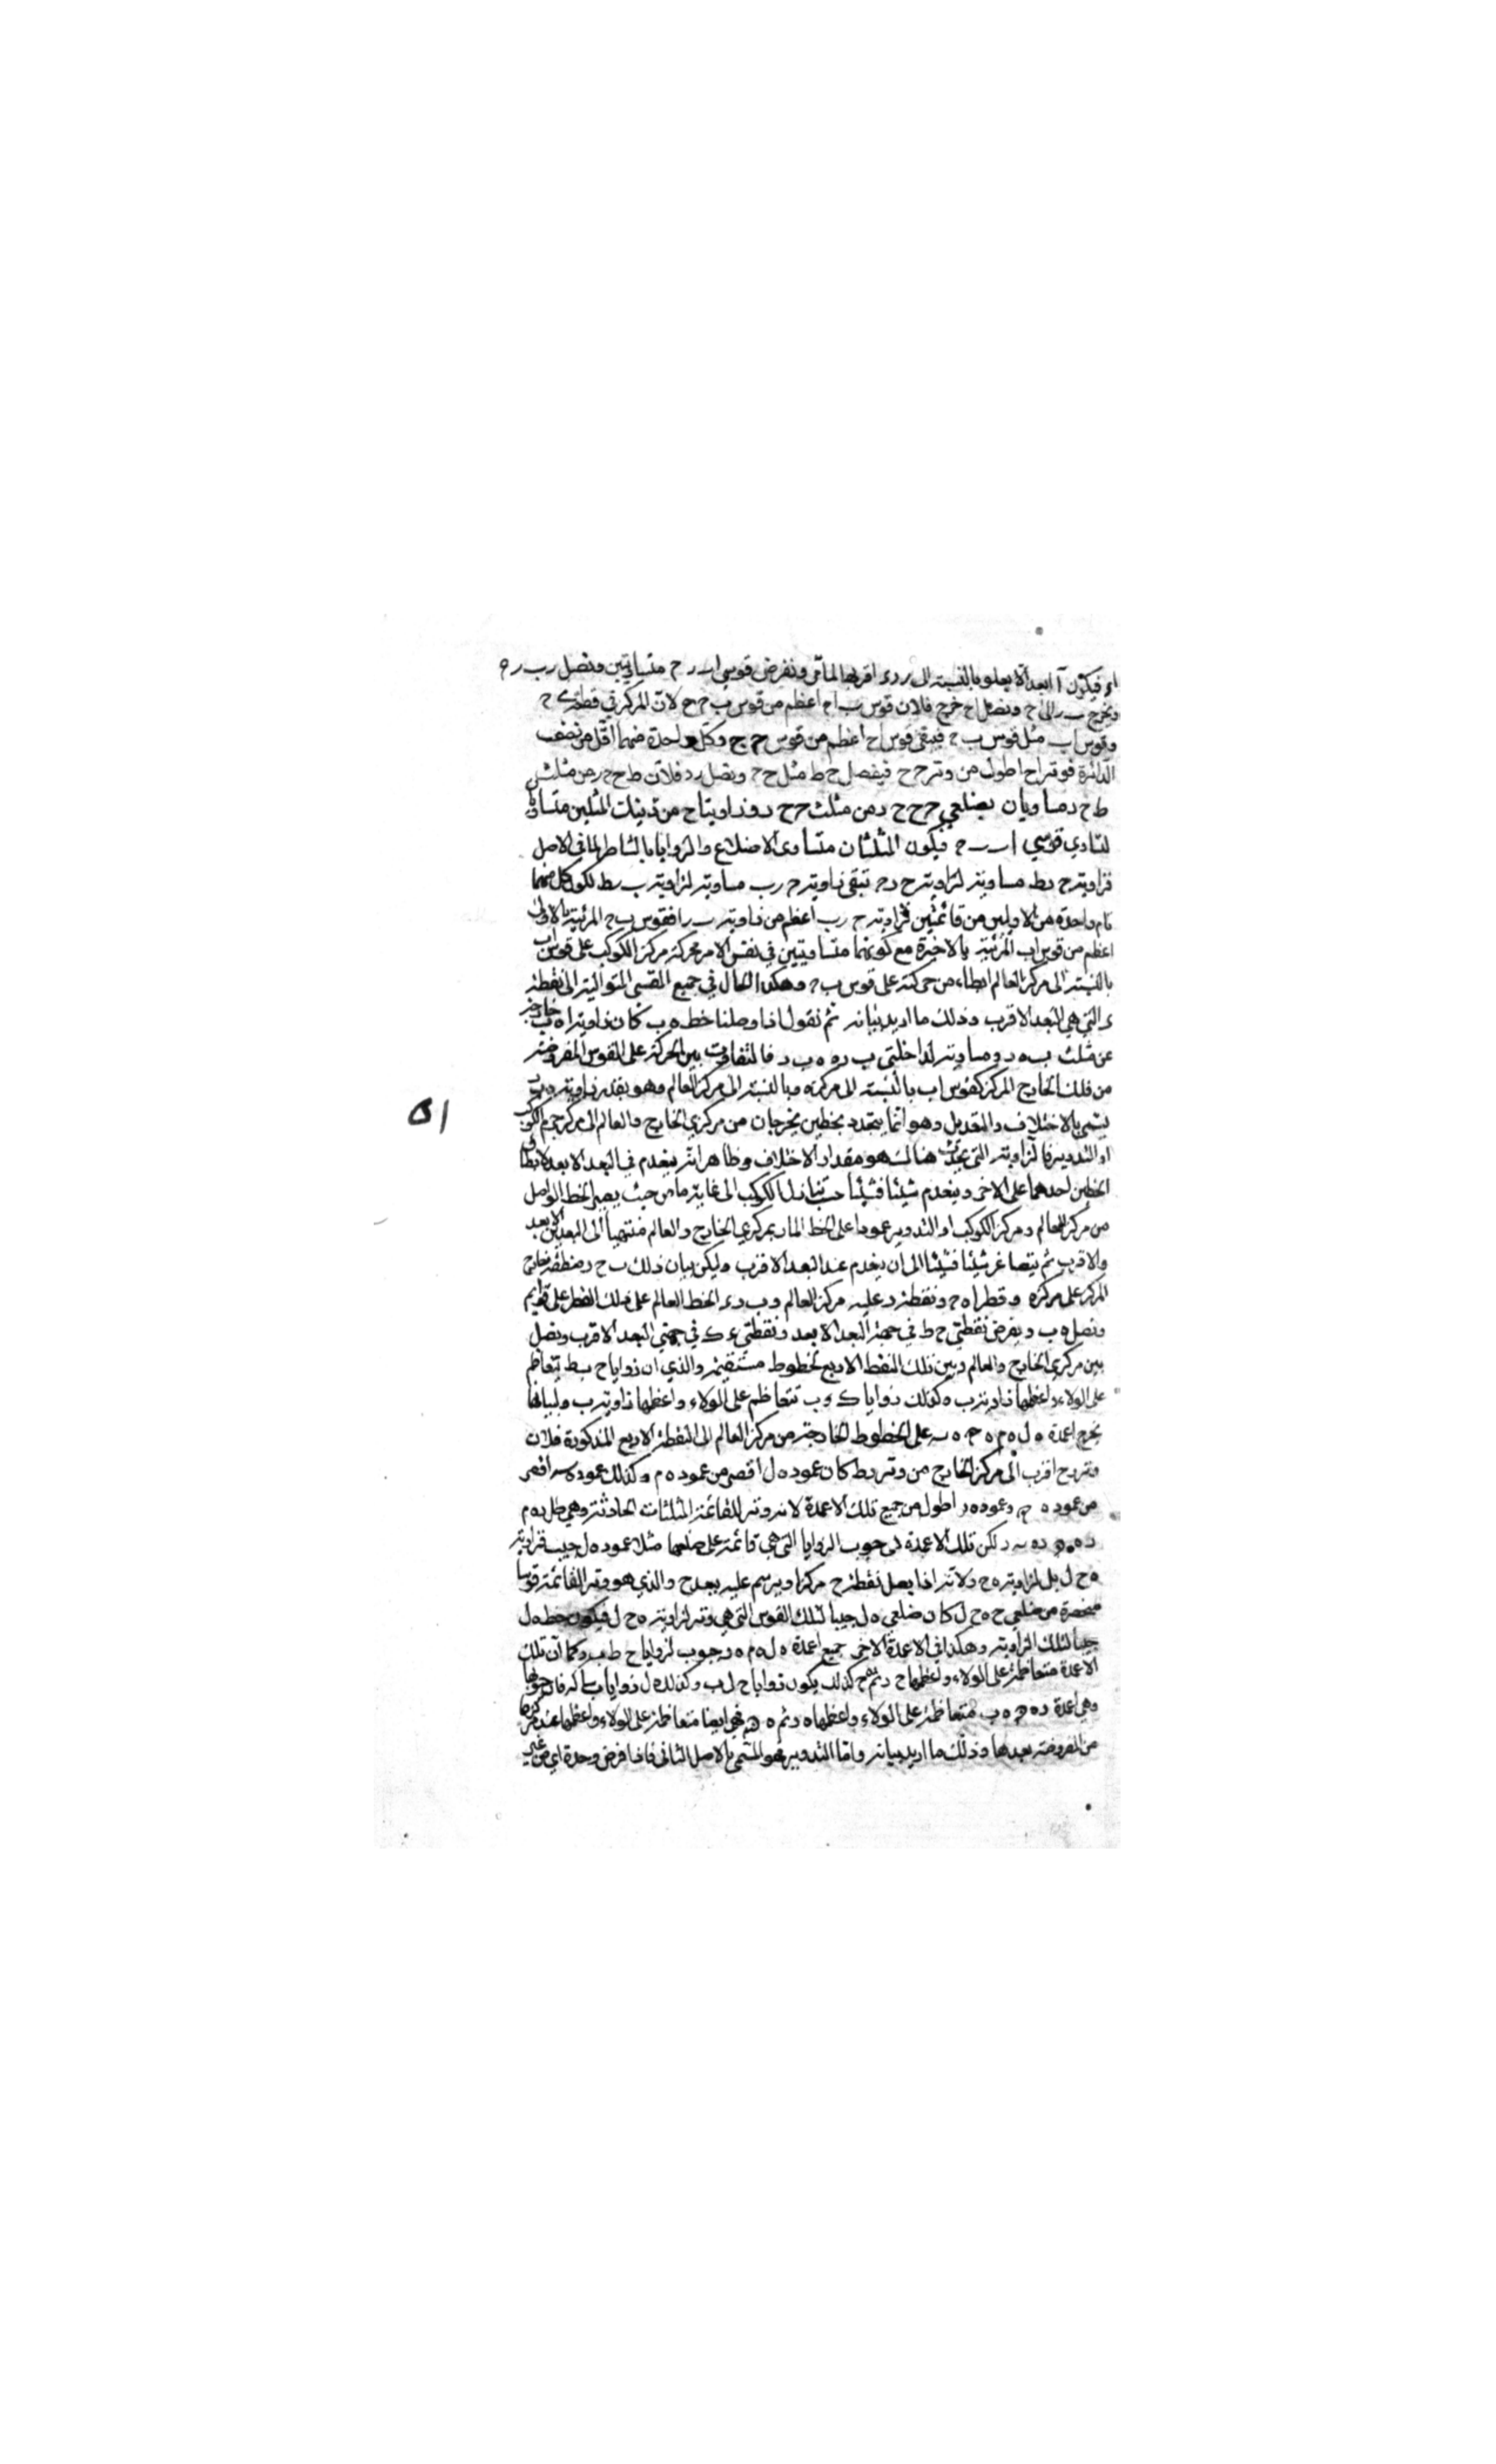 اء فيكون آ ابعد الابعاد بالنسبة الى ر د ء اقربها لما مر ونفرض قوسي اب ر ح متساويتين ونصل رب ر ه
ونخرج ب ر الى ح ونصل اح خرج فلان قوس ب ا م اعظم من قوس ب ح ح لان المركز في قطعة ح
وقوس اب مثل قوس ب ح فيبقى قوس اح اعظم من قوس ح ج وكل واحدة منهما اقل من نصف
الدائرة فوتر اح اطول من وتر ح ح فيفصل ح ط مثل ح ح ونصل رد فلان ط ح ح ر من مثلثي
ط ح د مساويان لضلعي ح ح ح د من مثلث ح ح د وزاويتا ح من ذينك المثلثين متساويتان
لتساوي قوسي اب ب ح فيكون المثلثان متساوي الاضلاع والزوايا بالتناظر لما في الاصل
فزاوية ح د ط مساوية لزاوية ح د ح تبقى زاوية ح رب مساوية لزاوية ب ر ط لكون كل منهما
تمام واحدة من الاوليين من قائمتين فزاوية ح رب اعظم من زاوية ب را فقوس ب ح المرئية بالاولى
اعظم من قوس اب المرئية بالاخيرة مع كونهما متساويتين في نفس الامر فحركة مركز الكوكب على قوس اب
بالنسبة الى مركز العالم ابطاء من حركته على قوس ب ح وهكذا الحال في جميع القسي المتوالية الى نقطة
ء التي هي البعد الاقرب وذلك ما اريد بيانه ثم نقول اذا وصلنا خط ه ب كان زاوية ا ه ب خارجة
عن مثلث ب ه د ومساوية لداخلتي ب ر ه ه ب د فالتفاوت بين الحركة على القوس المفروضة
من فلك الخارج المركز كقوس اب بالنسبة الى مركزه وبالنسبة الى مركز العالم وهو بقدر زاوية ه ب د
يسمى بالاختلاف والتعديل وهو انما يتحدد بخطين يخرجان من مركزي الخارج والعالم الى مركز جرم الكوكب
او التدوير فالزاوية التي تحدث هنالك هو مقدار الاختلاف وظاهر انه ينعدم في البعد الابعد لانطباق
الخطين احدهما على الاخر وينعدم شيئا فشيئا حسب تنازل الكوكب الى غاية ما من حيث يصير الخط الواصل
من مركز العالم ومركز الكوكب او التدوير عمودا على الخط المار بمركزي الخارج والعالم منتهيا الى البعدين الابعد
والاقرب ثم يتصاغر شيئا فشيئا الى ان ينعدم عند البعد الاقرب وليكن بيان ذلك ب ح ر منطقة خارج
المركز على مركزه وقطر ا ه ح ونقطة د عليه مركز العالم و ب د ء الخط العالم على ذلك القطر على قوايم
ونصل ه ب ونفرض نقطتي ح ط في جهة البعد الابعد ونقطتي ء ك في جهتي البعد الاقرب ونصل
بين مركزي الخارج والعالم وبين تلك النقط الاربع بخطوط مستقيمة والذي ان زوايا ح ب ط تتعاظم
على الولاء واعظمها زاوية ب ه كذلك زوايا ك و ب تتعاظم على الولاء واعظمها زاوية ب ولبيانها
نخرج اعمدة ه ل ه م ه ح ه س على الخطوط الخارجة من مركز العالم الى النقطة الاربع المذكورة فلان
وتر د ح اقرب الى مركز الخارج من وتر د ط كان عمود ه ل اقصر من عمود ه م وكذلك عمود ه س اقصر
من عمود ه ح وعمود ه د اطول من جميع تلك الاعمدة لانه وتر للقائمة المثلثات الحادثة وهي د ل ه د ه م
د ه ح د ه س د لكن تلك الاعمدة هي جيوب الزوايا التي هي قائمة على ضلعها مثلا عمود ه ل جيب فزاوية
ه ح ل بل لزاوية ه ح د لانه اذا يجعل نقطة ح مركزا ويرسم عليه ببعد ح والذي هو وتر القائمة قوسا
منحصرة من ضلعي ح ه ح ل كان ضلعي ه ل جيبا لتلك القوس التي هي وتر لزاوية ه ح ل فيكون خط ه ل
جيبا لتلك الزاوية وهكذا في الاعمدة الاخر جميع اعمدة ه ل ه م ه د جيوب لزوايا ح ط ب وكما ان تلك
الاعمدة متعاظمة على الولاء واعظمها ح د ثم ح كذلك يكون زوايا ح ل ب وكذلك زوايا ب ك فان جيوبها
وهي اعمدة د ه ح ه ب متعاظمة على الولاء واعظمها ه د ثم ه ح فهي ايضا متعاظمة على الولاء واعظمها عند مركزها
من المفروضة بعدها وذلك ما اريد بيانه واما التدوير فهو المسمى بالاصل الثاني فاذا فرض وحدة اي من غير
٥١